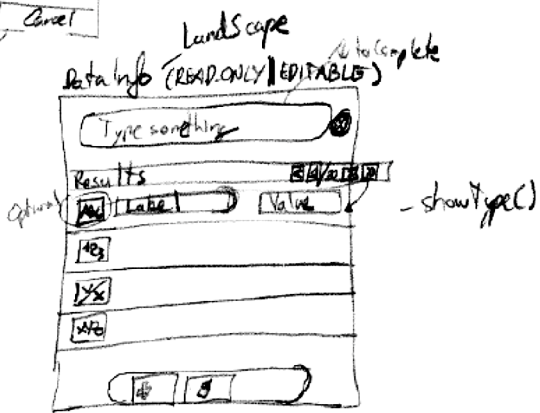 Cancel
LandScape
AutoComplete
Data Info (READ.ONLY | EDITABLE)
Type something
Results
Optional
Label
Value
- showType()
123
Y/x